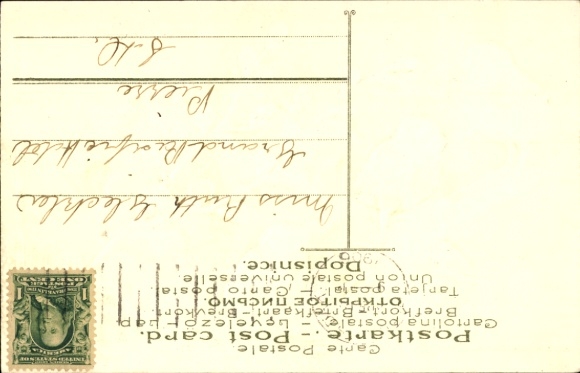 Carte Postale
Postkarte - Post card.
Cartolina postale - Levelező-Lap
Brefkort - Briefkaart - Brevkort
ОТКРЫТОЕ ПИСЬМО.
Tarjeta postal - Carto posta
Union postale universelle
Dopisnice.
UNITED STATES OF AMERICA
1 1
ONE CENT
Miss Ruth
Grand Hotel
Pierre
S.D.